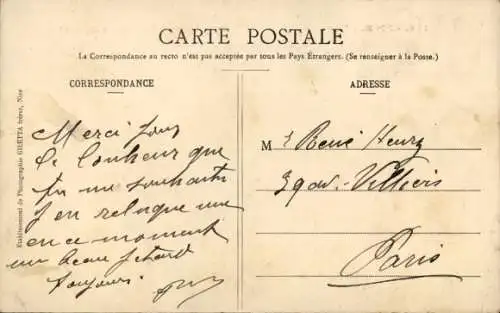 CARTE POSTALE
La Correspondance au recto n'est pas acceptée par tous les Pays Étrangers. (Se renseigner à la Poste.)
CORRESPONDANCE
Etablissement de Photographie GILETTA frères, Nice
Merci pour
le bonheur que
tu me souhaites
J'en
en ce moment
un beau
toujours
ADRESSE
M r René Henry
39 av. Villiers
Paris